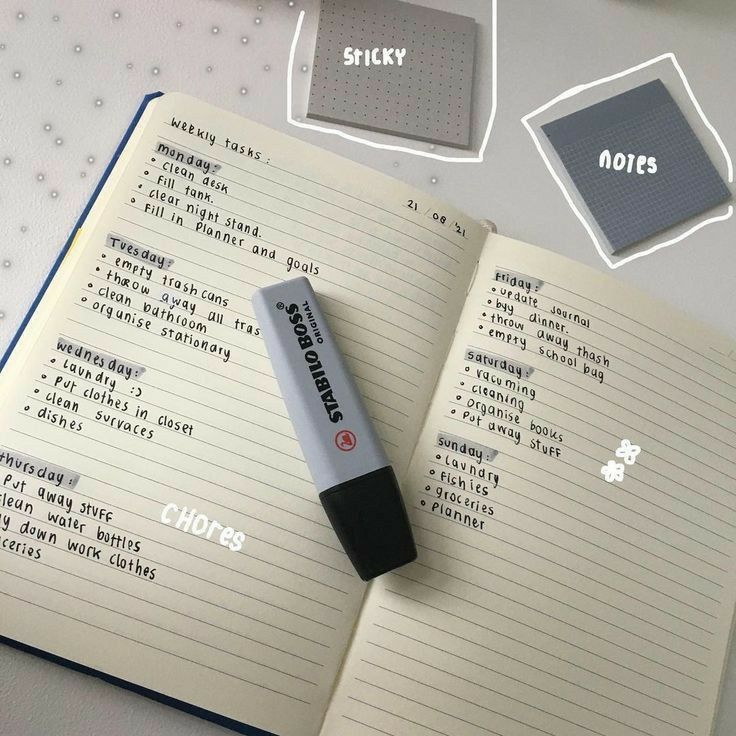 STICKY
NOTES
weekly tasks:
21/08/'21
monday:
• clean desk
• Fill tank.
• clear night stand.
• Fill in planner and goals
Tuesday:
• empty trashcans
• throw away all tras
• clean bathroom
• organise stationary
wednesday:
• laundry :)
• put clothes in closet
• clean survaces
• dishes
thursday:
put away stuff
clean water bottles
y down work clothes
ceries
CHORES
STABILO BOSS®
ORIGINAL
Friday:
• update journal
• buy dinner.
• throw away thash
• empty school bag
saturday:
• vacuming
• cleaning
• organise books
• put away stuff
sunday:
• laundry
• fishies
• groceries
• planner